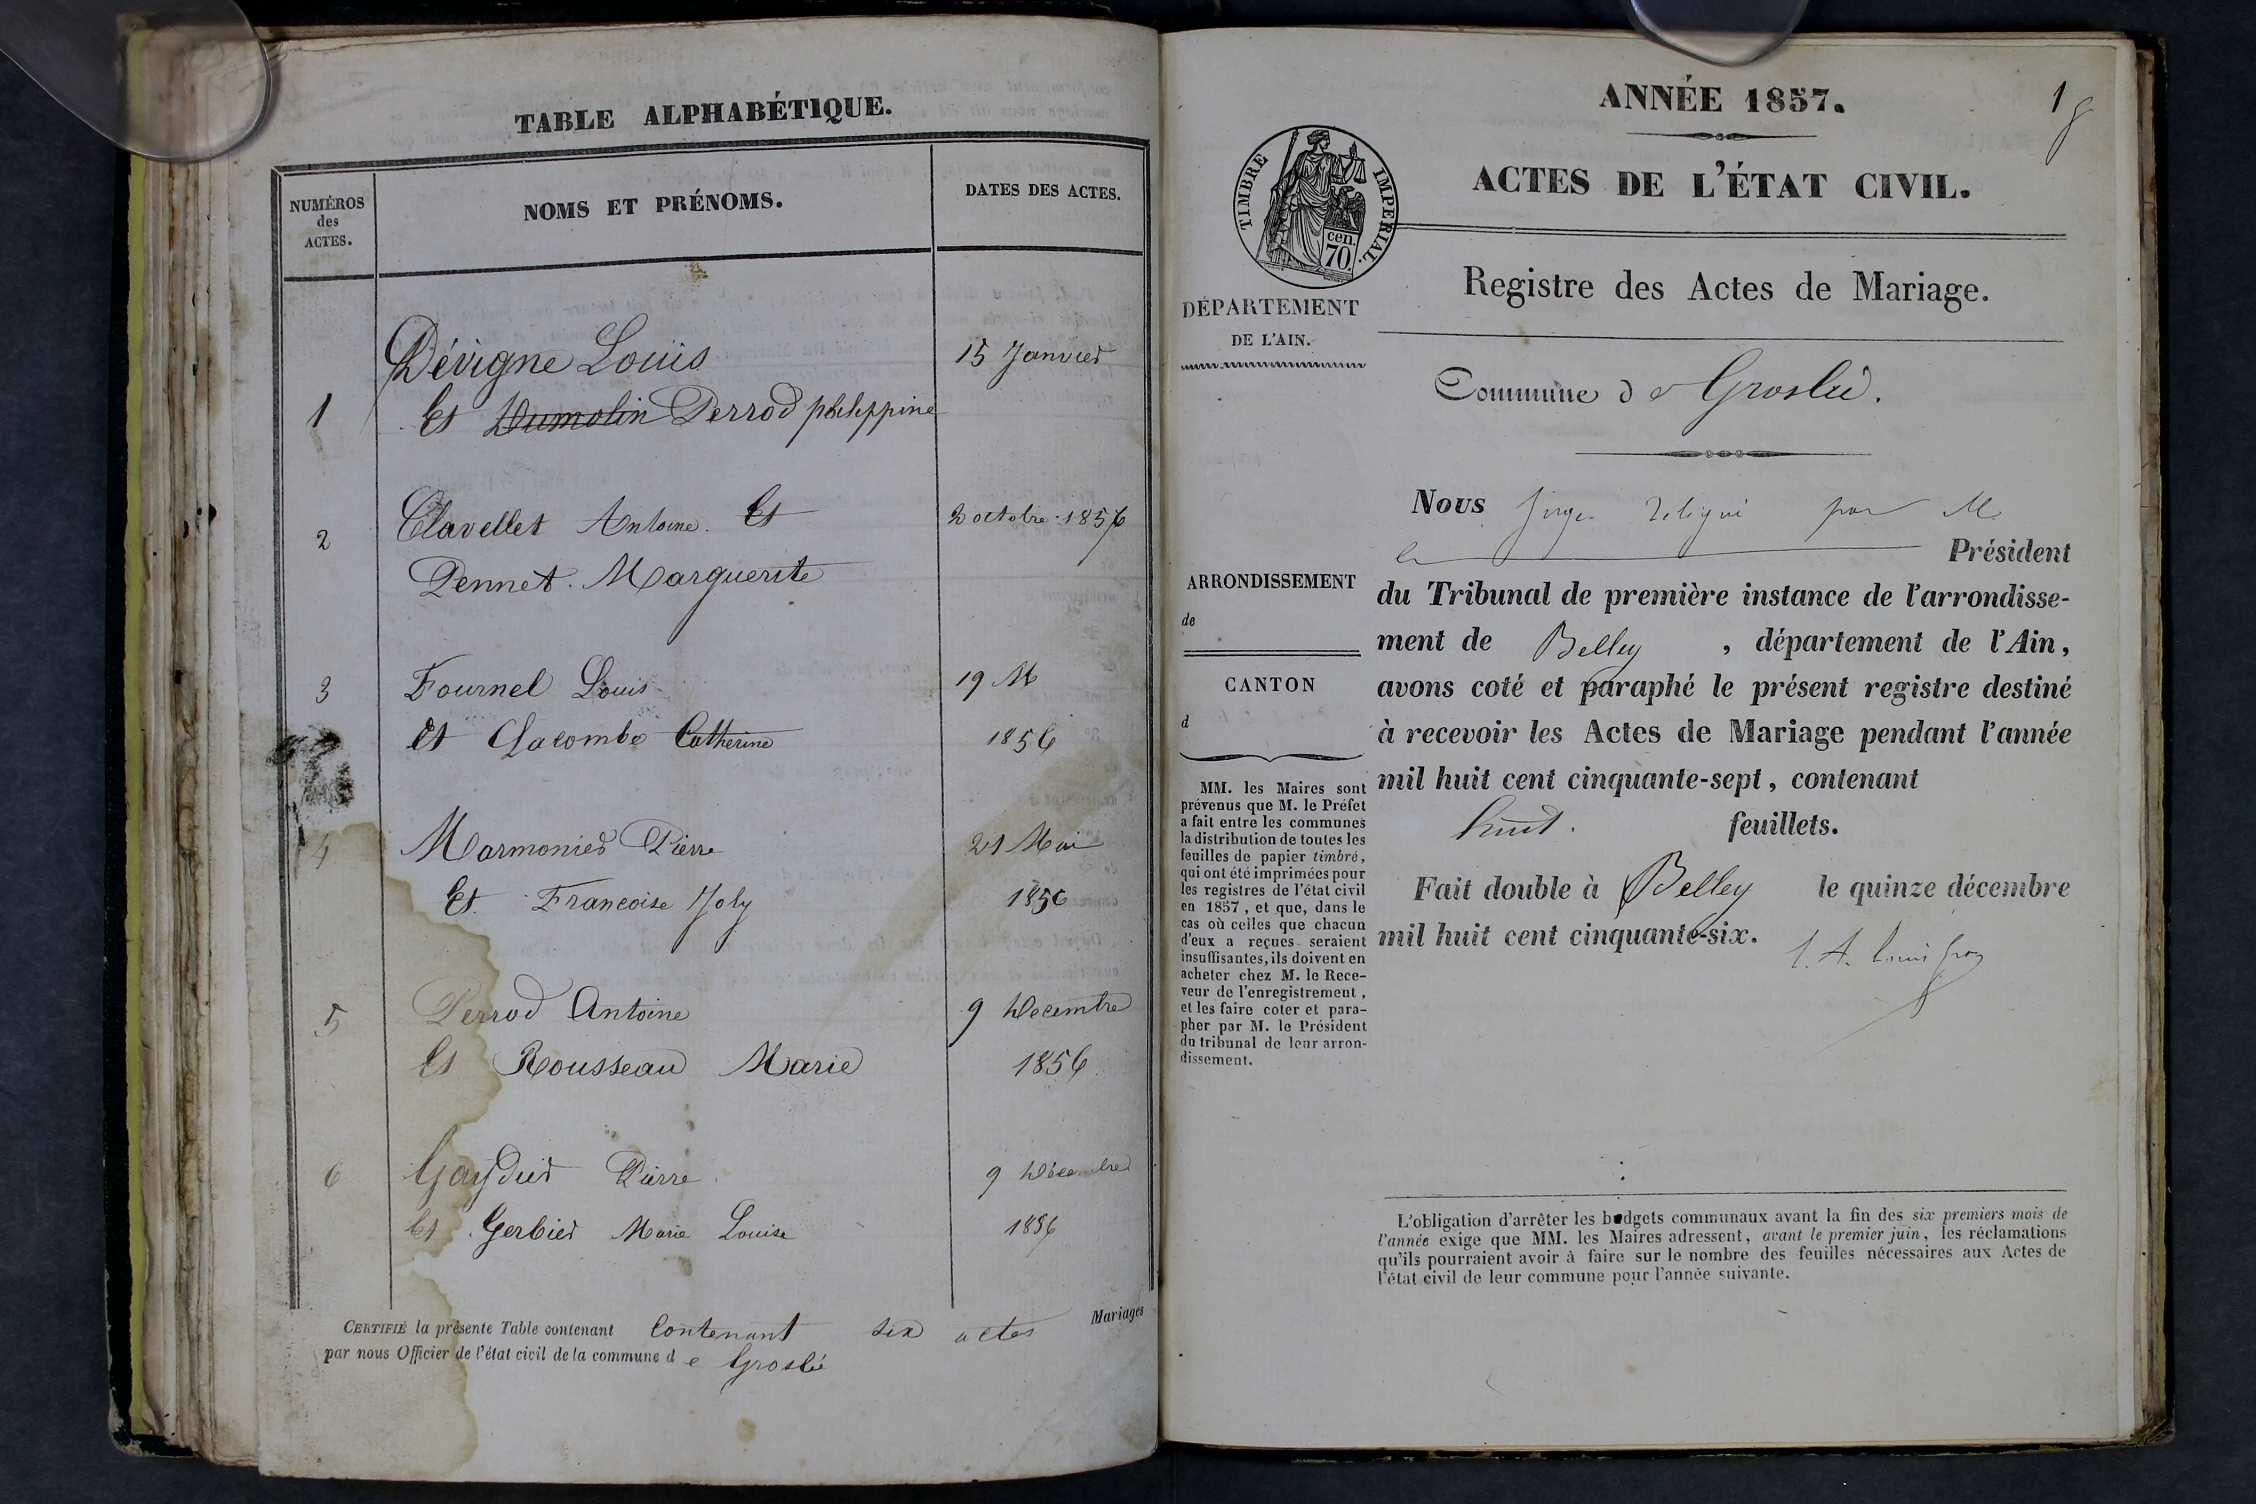 TABLE ALPHABÉTIQUE.
NUMÉROS
des
ACTES.
NOMS ET PRÉNOMS.
DATES DES ACTES.
Dévigne Louis
15 Janvier
1
Et Dumolin Perrod philippine
2
Clavellet Antoine. Et
octobre 1856
Pennet. Marguerite
3
Fournel Louis
19 M
Et Lacombe Catherine
1856
4
Marmonier Pierre
21 Mai
Et Francoise Joly
1856
5
Perrod Antoine
9 Decembre
Et Rousseau Marie
1856
6
Gaydier Pierre
9 Décembre
Et Gerbier Marie Louise
1856
CERTIFIÉ la présente Table contenant Contenant six actes Mariages
par nous Officier de l'état civil de la commune de Groslée
ANNÉE 1857.
1
ACTES DE L'ÉTAT CIVIL.
TIMBRE IMPERIAL.
cen.
70
Registre des Actes de Mariage.
DÉPARTEMENT
DE L'AIN.
Commune de Groslée.
Nous Juge délégué par M.
le Président
du Tribunal de première instance de l'arrondisse-
ment de Belley, département de l'Ain,
avons coté et paraphé le présent registre destiné
à recevoir les Actes de Mariage pendant l'année
mil huit cent cinquante-sept, contenant
huit. feuillets.
Fait double à Belley le quinze décembre
mil huit cent cinquante-six.
ARRONDISSEMENT
de
CANTON
d
MM. les Maires sont
prévenus que M. le Préfet
a fait entre les communes
la distribution de toutes les
feuilles de papier timbré,
qui ont été imprimées pour
les registres de l'état civil
en 1857, et que, dans le
cas où celles que chacun
d'eux a reçues seraient
insuffisantes, ils doivent en
acheter chez M. le Rece-
veur de l'enregistrement,
et les faire coter et para-
pher par M. le Président
du tribunal de leur arron-
dissement.
L'obligation d'arrêter les budgets communaux avant la fin des six premiers mois de
l'année exige que MM. les Maires adressent, avant le premier juin, les réclamations
qu'ils pourraient avoir à faire sur le nombre des feuilles nécessaires aux Actes de
l'état civil de leur commune pour l'année suivante.